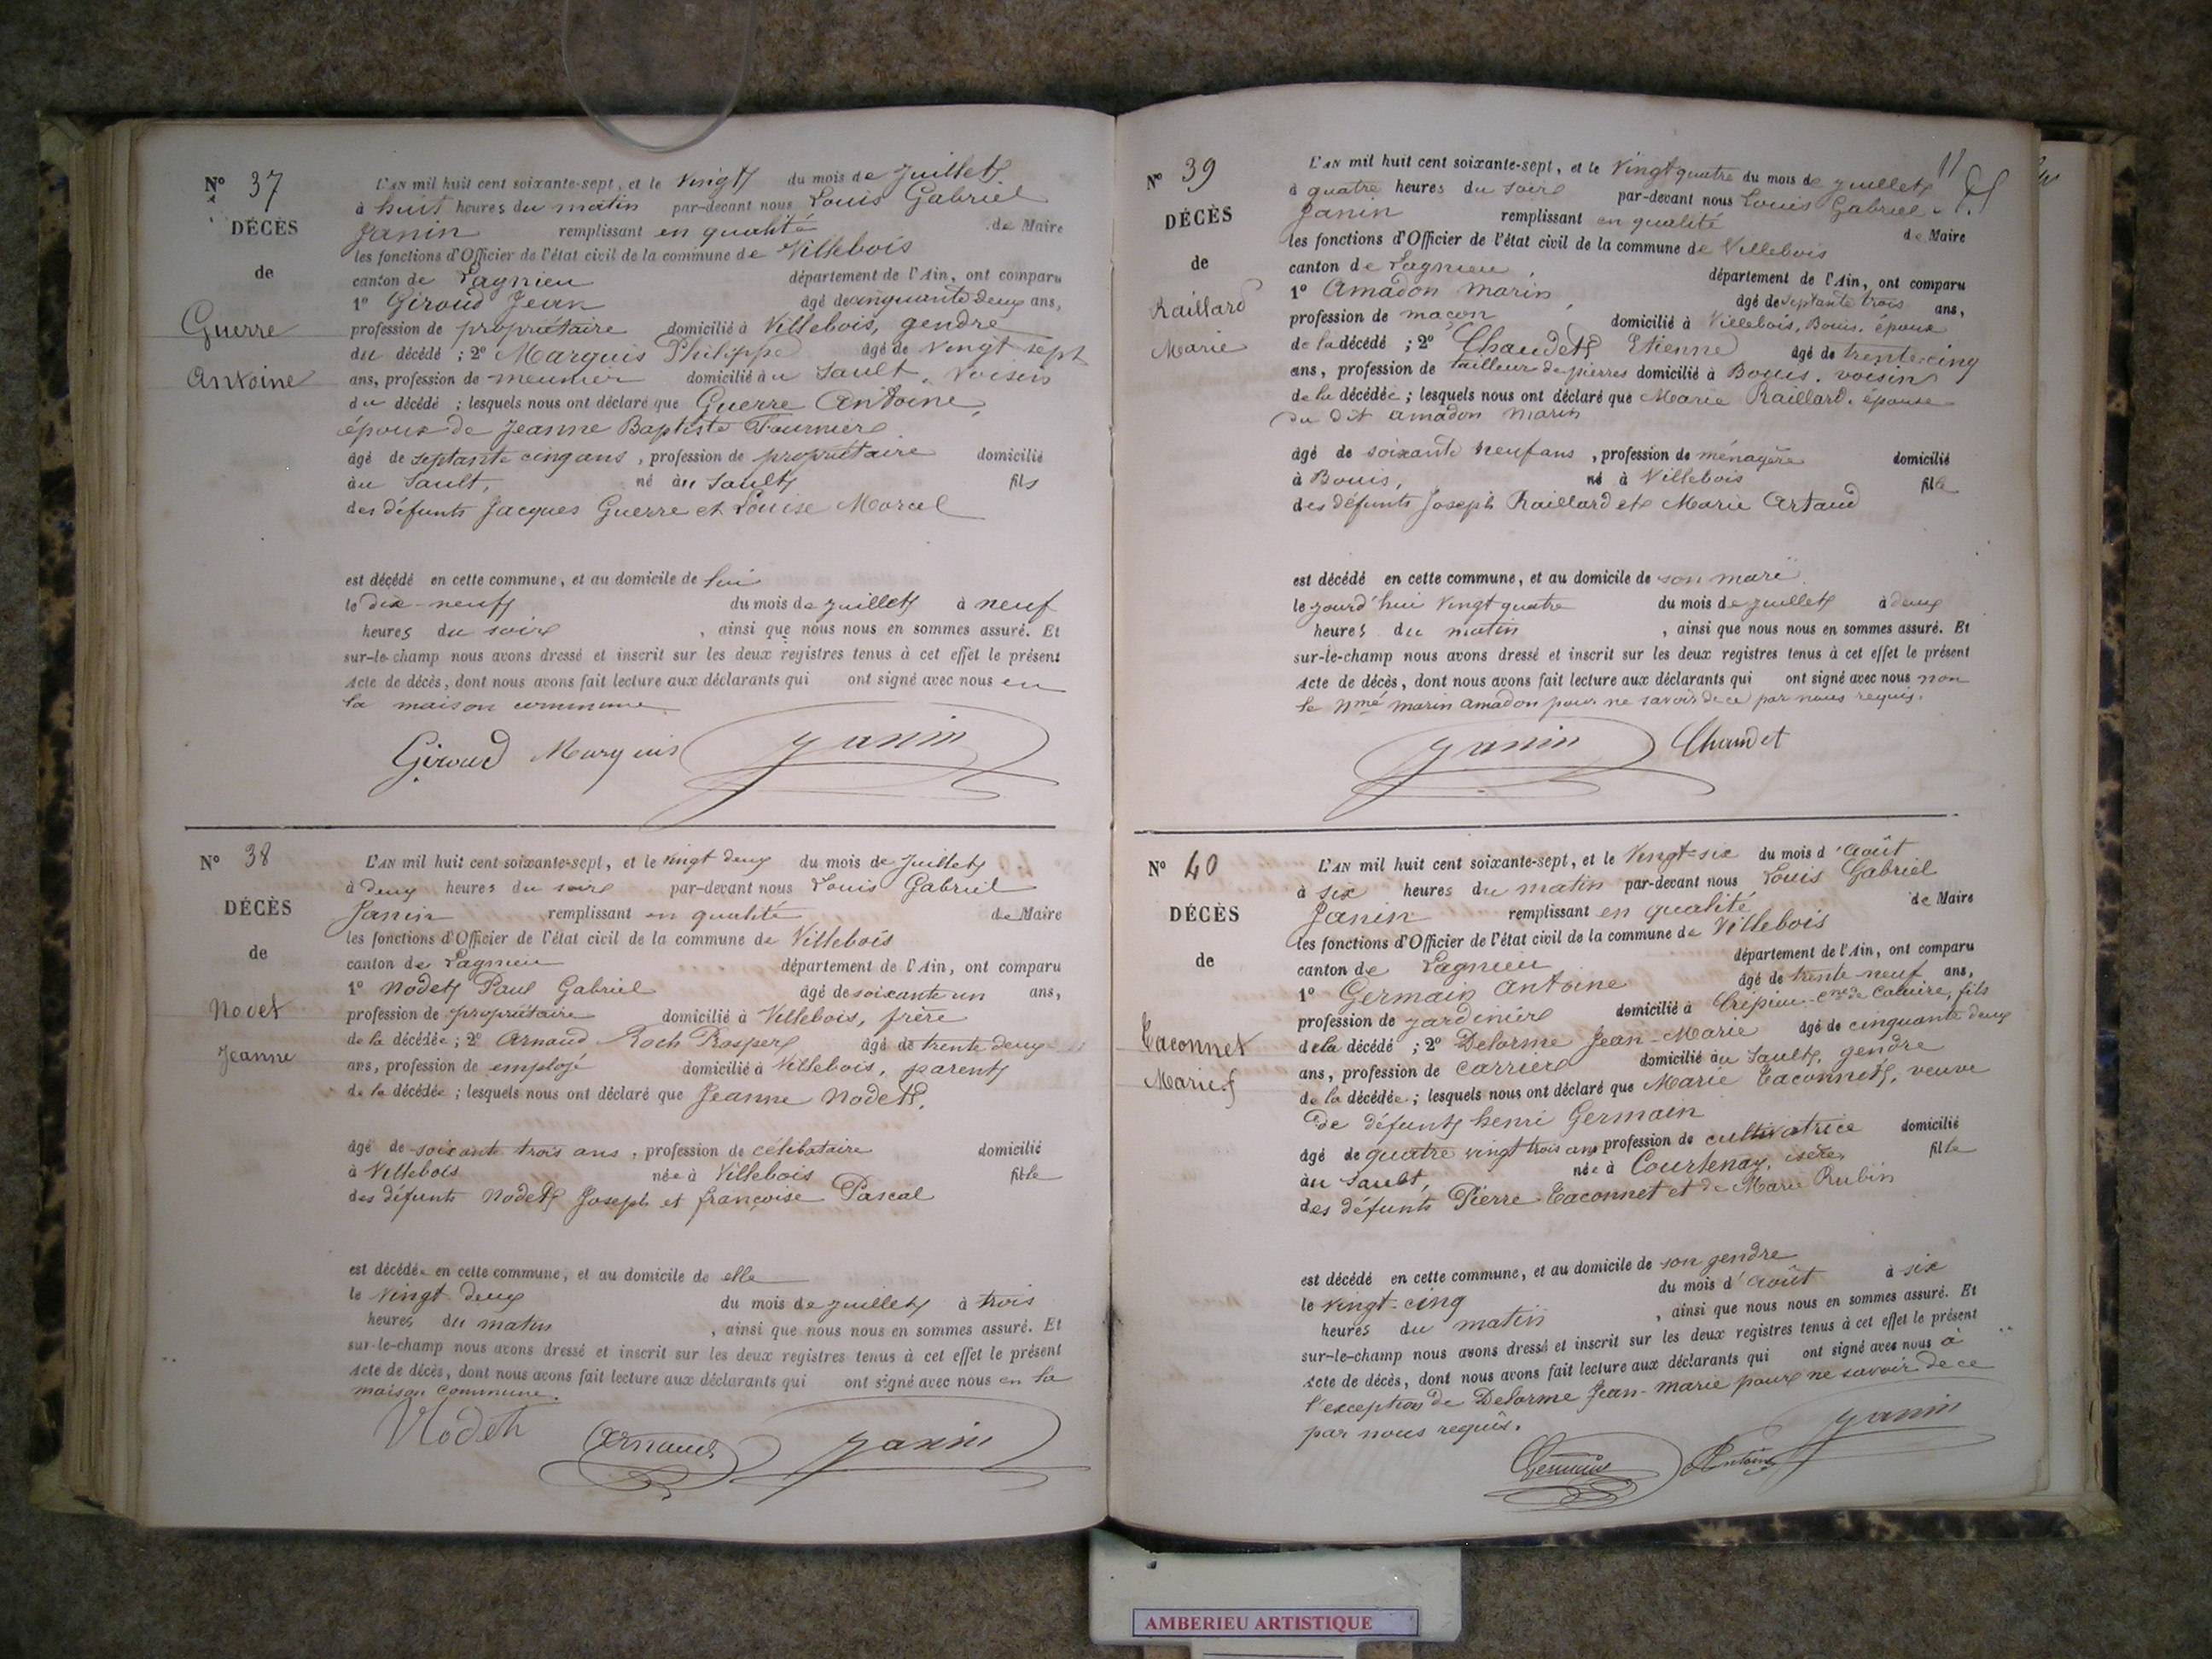 N° 37
DÉCÈS
de
Guerre
Antoine
L'AN mil huit cent soixante-sept, et le vingt du mois de juillet
à huit heures du matin par-devant nous Louis Gabriel
Janin remplissant en qualité de Maire
les fonctions d'Officier de l'état civil de la commune de Villebois
canton de Lagnieu département de l'Ain, ont comparu
1° Giroud Jean âgé de cinquante deux ans,
profession de propriétaire domicilié à Villebois, gendre
du décédé ; 2° Marquis Philippe âgé de vingt sept
ans, profession de meunier domicilié au Sault, voisin
du décédé ; lesquels nous ont déclaré que Guerre Antoine,
époux de Jeanne Baptiste Fournier
âgé de septante cinq ans, profession de propriétaire domicilié
au Sault, né au Sault fils
des défunts Jacques Guerre et Louise Marcel
est décédé en cette commune, et au domicile de lui
le dix-neuf du mois de juillet à neuf
heures du soir, ainsi que nous nous en sommes assuré. Et
sur-le-champ nous avons dressé et inscrit sur les deux registres tenus à cet effet le présent
acte de décès, dont nous avons fait lecture aux déclarants qui ont signé avec nous en
la maison commune
Giroud Marquis Janin
N° 38
DÉCÈS
de
Nodet
Jeanne
L'AN mil huit cent soixante-sept, et le vingt deux du mois de juillet
à deux heures du soir par-devant nous Louis Gabriel
Janin remplissant en qualité de Maire
les fonctions d'Officier de l'état civil de la commune de Villebois
canton de Lagnieu département de l'Ain, ont comparu
1° Nodet Paul Gabriel âgé de soixante un ans,
profession de propriétaire domicilié à Villebois, frère
de la décédée ; 2° Arnaud Roch Prosper âgé de trente deux
ans, profession de employé domicilié à Villebois, parent
de la décédée ; lesquels nous ont déclaré que Jeanne Nodet,
âgé de soixante trois ans, profession de célibataire domicilié
à Villebois née à Villebois fille
des défunts Nodet Joseph et françoise Pascal
est décédée en cette commune, et au domicile de elle
le vingt deux du mois de juillet à trois
heures du matin, ainsi que nous nous en sommes assuré. Et
sur-le-champ nous avons dressé et inscrit sur les deux registres tenus à cet effet le présent
acte de décès, dont nous avons fait lecture aux déclarants qui ont signé avec nous en la
maison commune.
Nodet Arnaud Janin
N° 39
DÉCÈS
de
Raillard
Marie
L'AN mil huit cent soixante-sept, et le vingt quatre du mois de juillet
à quatre heures du soir par-devant nous Louis Gabriel
Janin remplissant en qualité de Maire
les fonctions d'Officier de l'état civil de la commune de Villebois
canton de Lagnieu, département de l'Ain, ont comparu
1° Amadon Marin, âgé de septante trois ans,
profession de maçon domicilié à Villebois, Bouis, époux
de la décédé ; 2° Chaudet Etienne âgé de trente-cinq
ans, profession de tailleur de pierres domicilié à Bouis, voisin
de la décédée ; lesquels nous ont déclaré que Marie Raillard, épouse
du dit amadon marin
âgé de soixante neuf ans, profession de ménagère domicilié
à Bouis, né à Villebois fille
des défunts Joseph Raillard et Marie Artaud
est décédé en cette commune, et au domicile de son mari
le jourd'hui vingt quatre du mois de juillet à deux
heures du matin, ainsi que nous nous en sommes assuré. Et
sur-le-champ nous avons dressé et inscrit sur les deux registres tenus à cet effet le présent
acte de décès, dont nous avons fait lecture aux déclarants qui ont signé avec nous non
le nmé marin amadon pour ne savoir de ce par nous requis.
Janin Chaudet
N° 40
DÉCÈS
de
Taconnet
Marie
L'AN mil huit cent soixante-sept, et le vingt-six du mois d'Août
à six heures du matin par-devant nous Louis Gabriel
Janin remplissant en qualité de Maire
les fonctions d'Officier de l'état civil de la commune de Villebois
canton de Lagnieu département de l'Ain, ont comparu
1° Germain Antoine âgé de trente-neuf ans,
profession de jardinier domicilié à Crépieu cne de Caluire, fils
de la décédé ; 2° Delorme Jean-Marie âgé de cinquante deux
ans, profession de carrier domicilié au Sault, gendre
de la décédée ; lesquels nous ont déclaré que Marie Taconnet, veuve
de défunt henri Germain
âgé de quatre vingt trois ans profession de cultivatrice domicilié
au Sault, née à Courtenay, isère, fille
des défunts Pierre Taconnet et de Marie Rubin
est décédé en cette commune, et au domicile de son gendre
le vingt-cinq du mois d'août à six
heures du matin, ainsi que nous nous en sommes assuré. Et
sur-le-champ nous avons dressé et inscrit sur les deux registres tenus à cet effet le présent
acte de décès, dont nous avons fait lecture aux déclarants qui ont signé avec nous à
l'exception de Delorme Jean-marie pour ne savoir de ce
par nous requis.
Germain Antoine Janin
AMBERIEU ARTISTIQUE